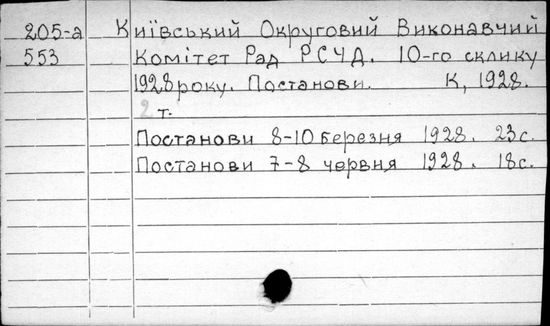 205-а Київський Округовий Виконавчий
553 Комітет Рад РСЧД. 10-го склику
1928 року. Постанови. К, 1928.
2 т.
Постанови 8-10 березня 1928. 23 с.
Постанови 7-8 червня 1928. 18 с.